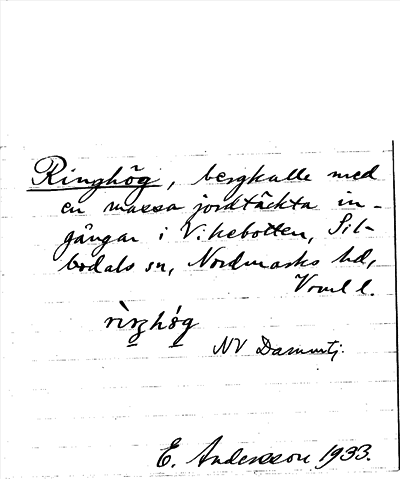 Ringhög, bergkulle med
en massa jordtäckta in-
gångar i V. hebotten, Sil-
bodals sn, Nordmarks hd,
Vrml l.
NV Dammtj.
E. Andersson 1933.